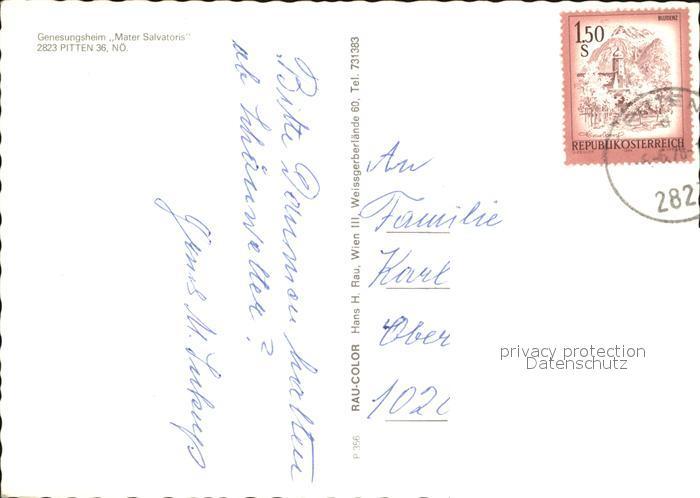 Genesungsheim „Mater Salvatoris"
2823 PITTEN 36, NÖ.
Bitte Daumen halten
ob Schönwetter?
M.
P 356 RAU-COLOR Hans H. Rau, Wien III, Weissgerberlände 60, Tel. 731383
An
Familie
Karl
Ober
102
privacy protection
Datenschutz
BLUDENZ
1,50
S
REPUBLIK ÖSTERREICH
282